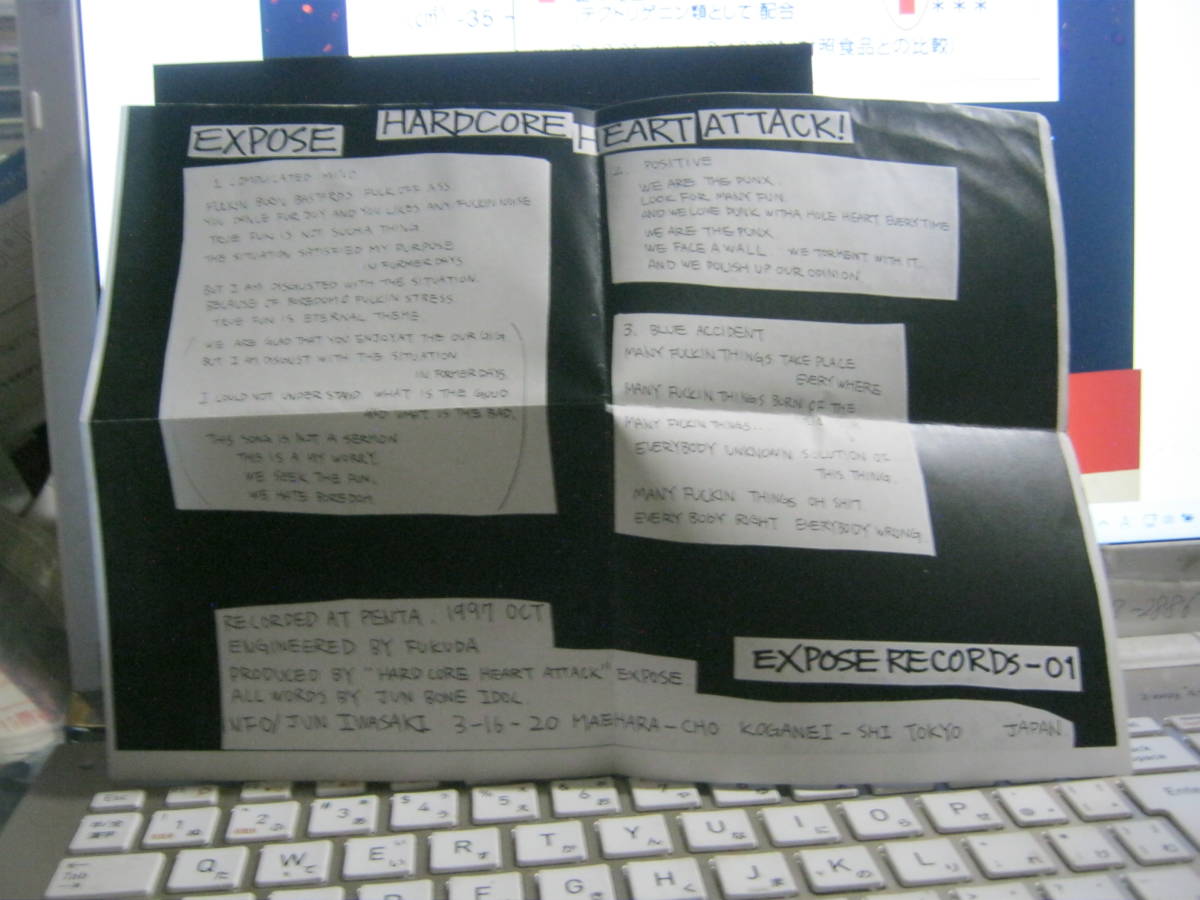 EXPOSE HARDCORE HEART ATTACK!
1. COMPLICATED MIND
FUCKIN BORN BASTARDS FUCK OFF ASS.
YOU DANCE FOR JOY AND YOU LIKES ANY FUCKIN NOISE
TRUE FUN IS NOT SUCH A THING
THE SITUATION SATISFIED MY PURPOSE
IN FORMER DAYS.
BUT I AM DISGUSTED WITH THE SITUATION.
BECAUSE OF BOREDOM & FUCKIN STRESS.
TRUE FUN IS ETERNAL THEME
WE ARE GLAD THAT YOU ENJOY AT THE OUR GIG
BUT I AM DISGUST WITH THE SITUATION
IN FORMER DAYS.
I COULD NOT UNDERSTAND WHAT IS THE GOOD
AND WHAT IS THE BAD.
THIS SONG IS NOT A SERMON
THIS IS A MY WORRY.
WE SEEK THE FUN.
WE HATE BOREDOM.
2. POSITIVE
WE ARE THE PUNX.
LOOK FOR MANY FUN
AND WE LOVE PUNK WITH A HOLE HEART EVERYTIME
WE ARE THE PUNX
WE FACE A WALL WE TORMENT WITH IT.
AND WE POLISH UP OUR OPINION.
3. BLUE ACCIDENT
MANY FUCKIN THINGS TAKE PLACE
EVERYWHERE
MANY FUCKIN THINGS BURN OF THE
MANY FUCKIN THINGS...
EVERYBODY UNKNOWN SOLUTION OF
THIS THING.
MANY FUCKIN THINGS OH SHIT.
EVERY BODY RIGHT EVERYBODY WRONG.
RECORDED AT PENTA. 1997 OCT
ENGINEERED BY FUKUDA
PRODUCED BY "HARDCORE HEART ATTACK" EXPOSE
ALL WORDS BY JUN BONE IDOL.
INFO/JUN IWASAKI 3-16-20 MAEHARA-CHO KOGANEI-SHI TOKYO JAPAN
EXPOSE RECORDS-01
として配合
***
食品との比較)
Esc
Q W E R T Y U I O P
G H J K L
Enter